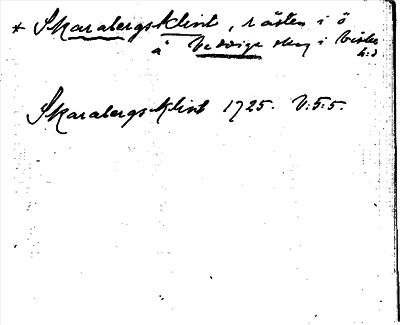 * Skarabergsklint, råsten i ö
å Veddige skog i Viske
h:d
Skarabergsklint 1725. V:5:5.